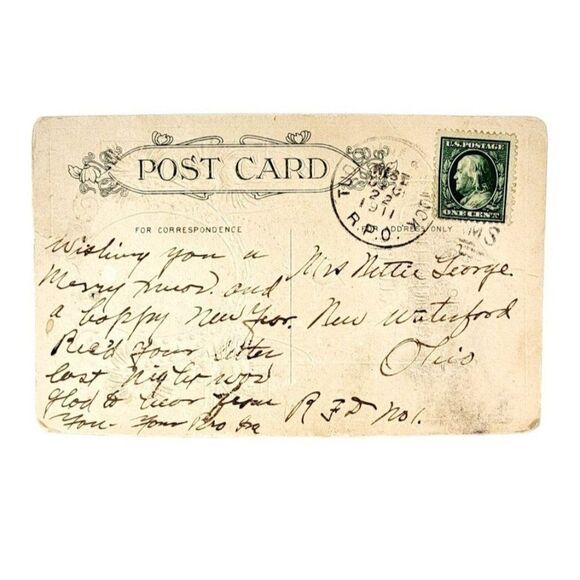 POST CARD
U.S. POSTAGE
ONE CENT
22
1911
R.P.O.
FOR CORRESPONDENCE
FOR ADDRESS ONLY
Wishing you a
Merry Xmas. and
a happy New Year.
Rec'd your letter
last night was
glad to hear from
You. Your Bro
Mrs Nettie George.
New Waterford
Ohio
R F D No 1.